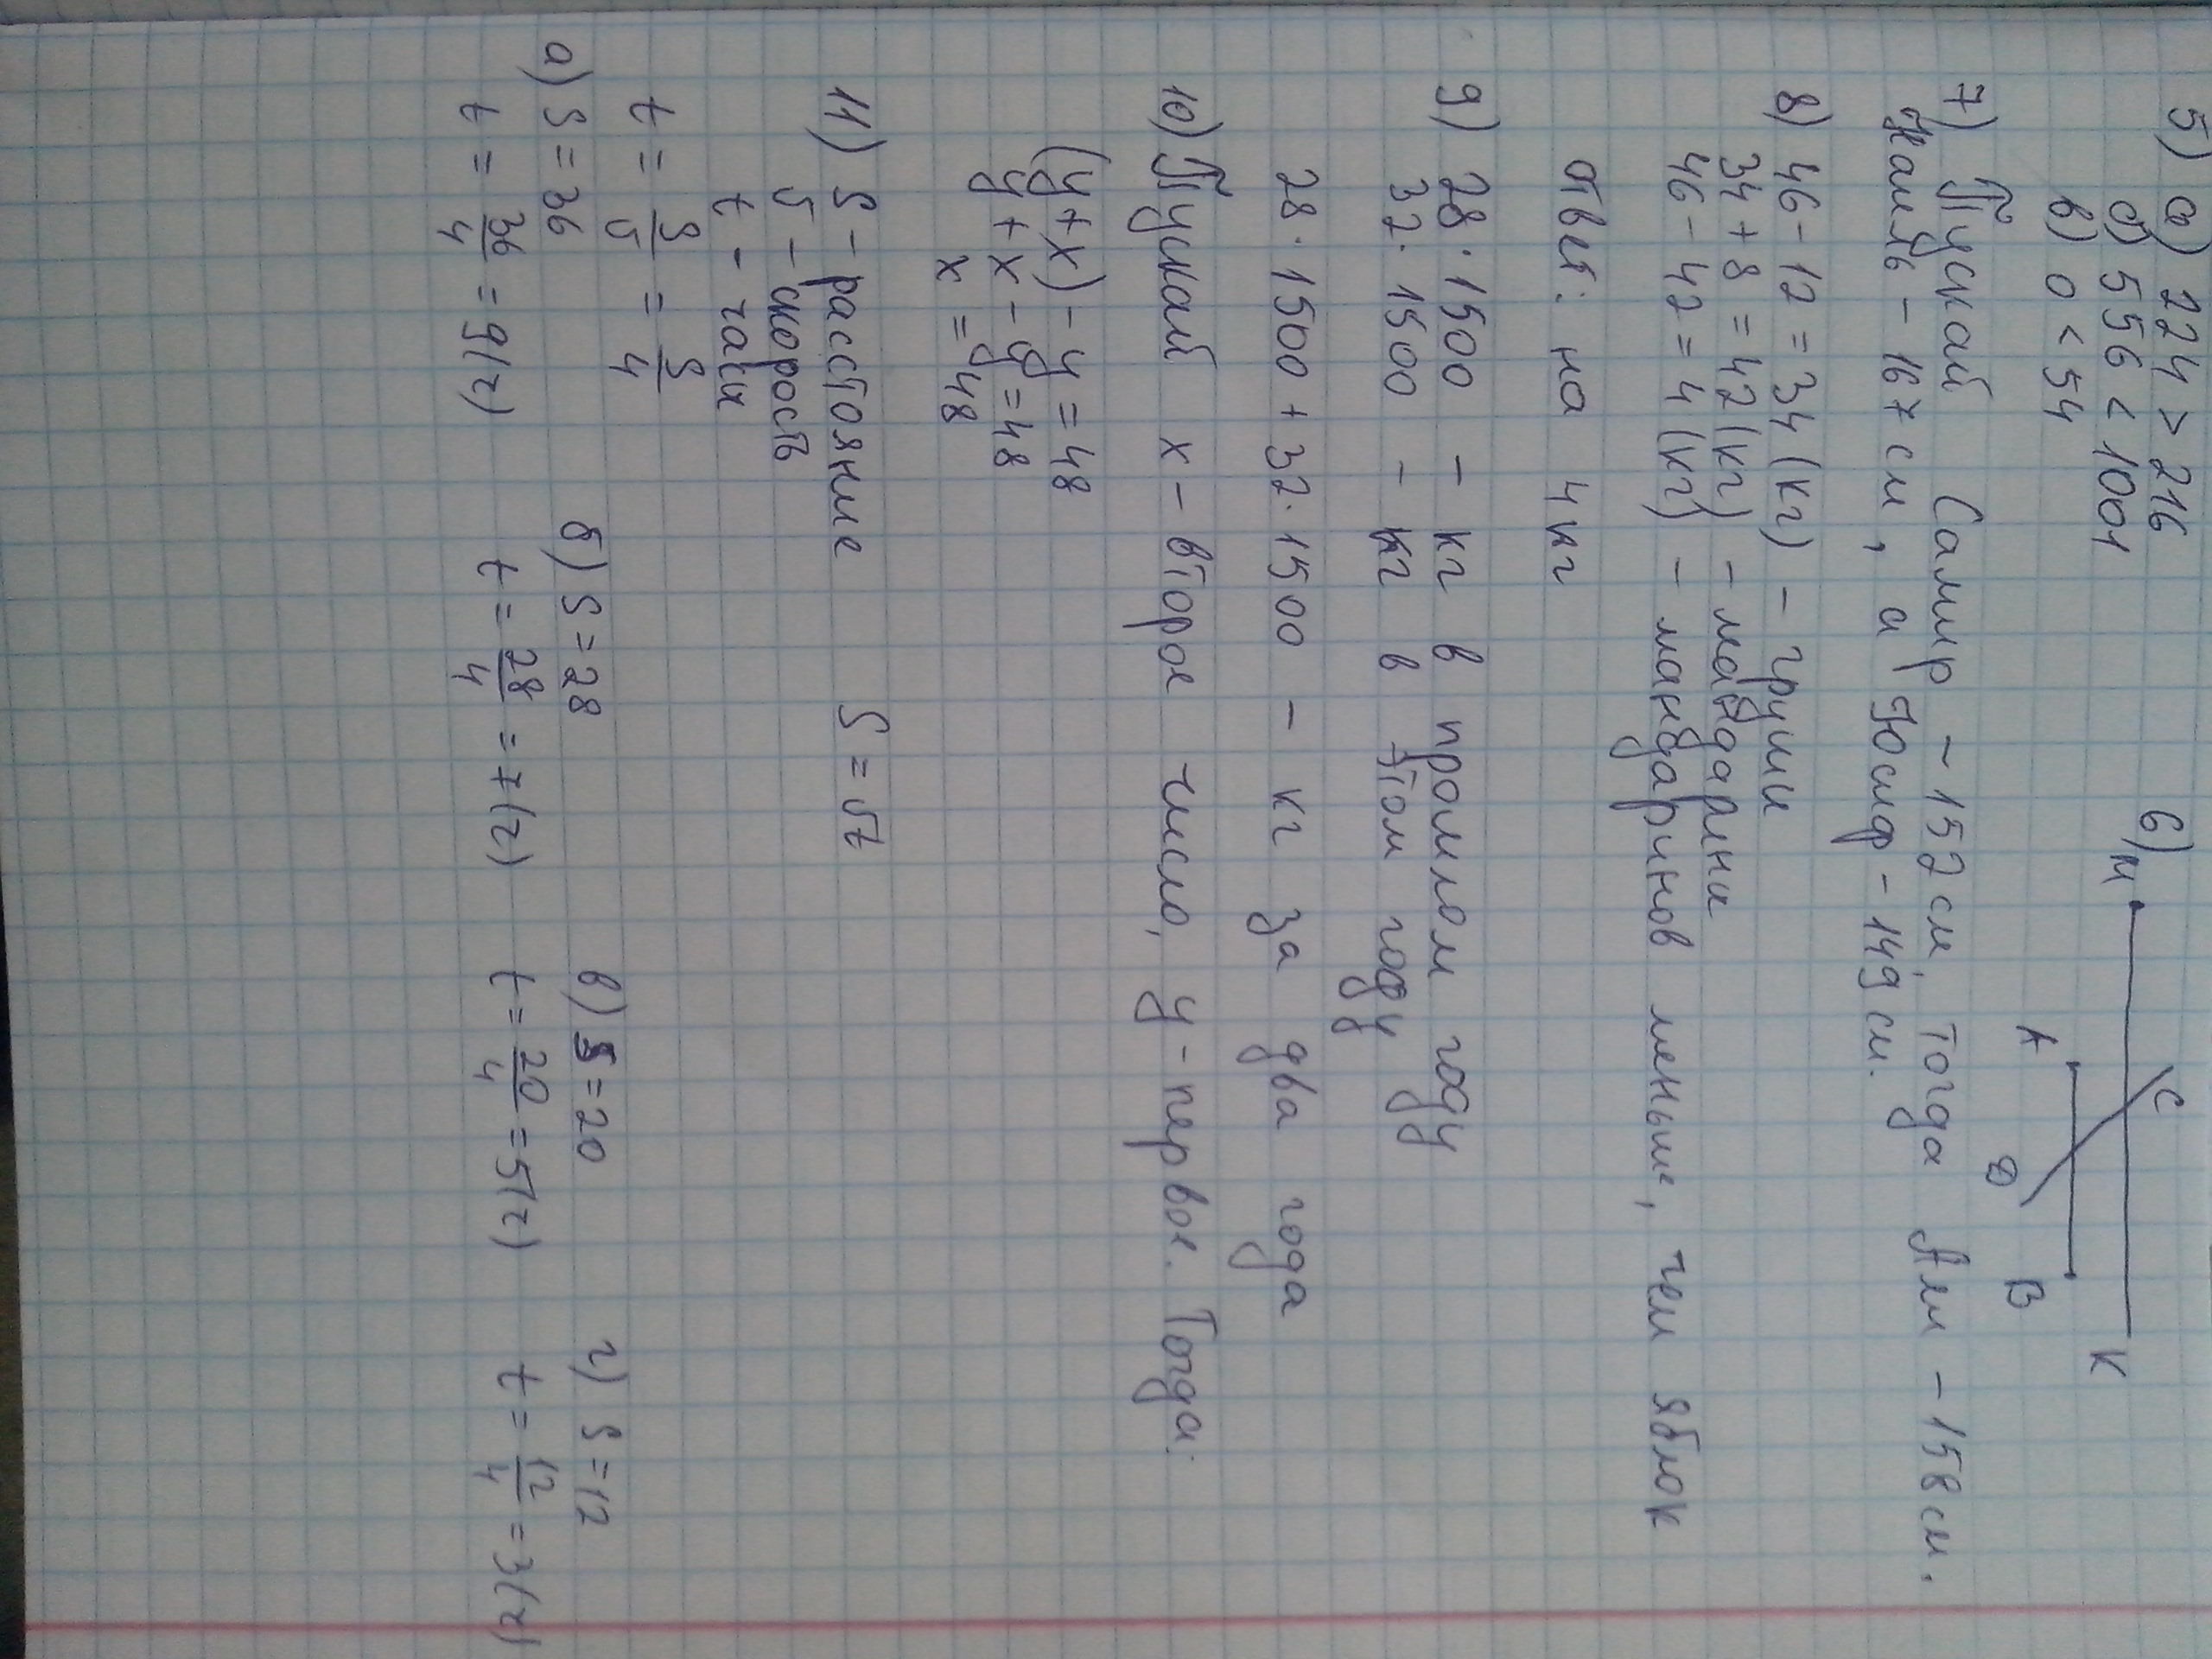 5) а) 224 > 216
б) 556 < 1001
в) 0 < 54
6)
M
C
K
A
D
B
7) Пускай Самир - 152 см, тогда Али - 158 см.
Камиль - 167 см, а Юсиф - 149 см.
8) 46 - 12 = 34 (кг) - груши
34 + 8 = 42 (кг) - мандарины
46 - 42 = 4 (кг) - мандаринов меньше, чем яблок
ответ: на 4 кг
9) 28 · 1500 - кг в прошлом году
32 · 1500 - кг в этом году
28 · 1500 + 32 · 1500 - кг за два года
10) Пускай x - второе число, y - первое. Тогда:
(y + x) - y = 48
y + x - y = 48
x = 48
11) S - расстояние S = vt
v - скорость
t - часы
t = S/v = S/4
а) S = 36 б) S = 28 в) S = 20 г) S = 12
t = 36/4 = 9 (ч) t = 28/4 = 7 (ч) t = 20/4 = 5 (ч) t = 12/4 = 3 (ч)